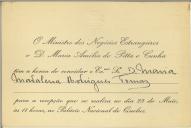 O Ministro dos Negócios Estrangeiros
e D. Maria Amélia de Pitta e Cunha
têm a honra de convidar a Exma. Sra. D. Maria
Madalena Rodrigues Ramos
para a recepção que se realiza no dia 29 de Maio,
às 18 horas, no Palácio Nacional de Queluz.